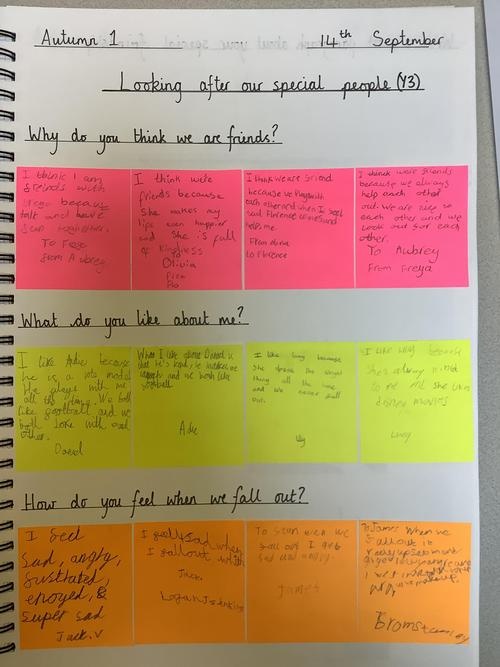 Autumn 1
14th September
Looking after our special people (Y3)
Why do you think we are friends?
I think I am
freinds with
because
talk and have
together.
To
from Aubrey
I think we're
friends because
She makes my
life even happier
and She is full
of kindness
To
Olivia
From
Flo
I think we are friend
because we Play with
each other and when I feel
sad Florence comes and
helps me.
From olivia
to Florence
I think we're friends
because we always
help each other
out. We are nice to
each other and we
look out for each
other.
To Aubrey
From Freya
What do you like about me?
I like Adie because
he is a role model
He plays with me
all the time. We both
like football and we
both joke with each
other.
David
What I like about David is
that he's kind, he makes me
laugh and we both like
football
Adie
I like lucy because
she
thing all the time
and we never fall
out.
lily
I like lily because
She's always kind
to me and she likes
disney movies
Lucy
How do you feel when we fall out?
I feel
Sad, angry,
frustrated,
enoyed, &
super sad
Jack.V
I feel Sad when
I fallout with
Jack.
Logan
To Stan when we
fall out I get
sad and angry.
James
To James When we
fallout